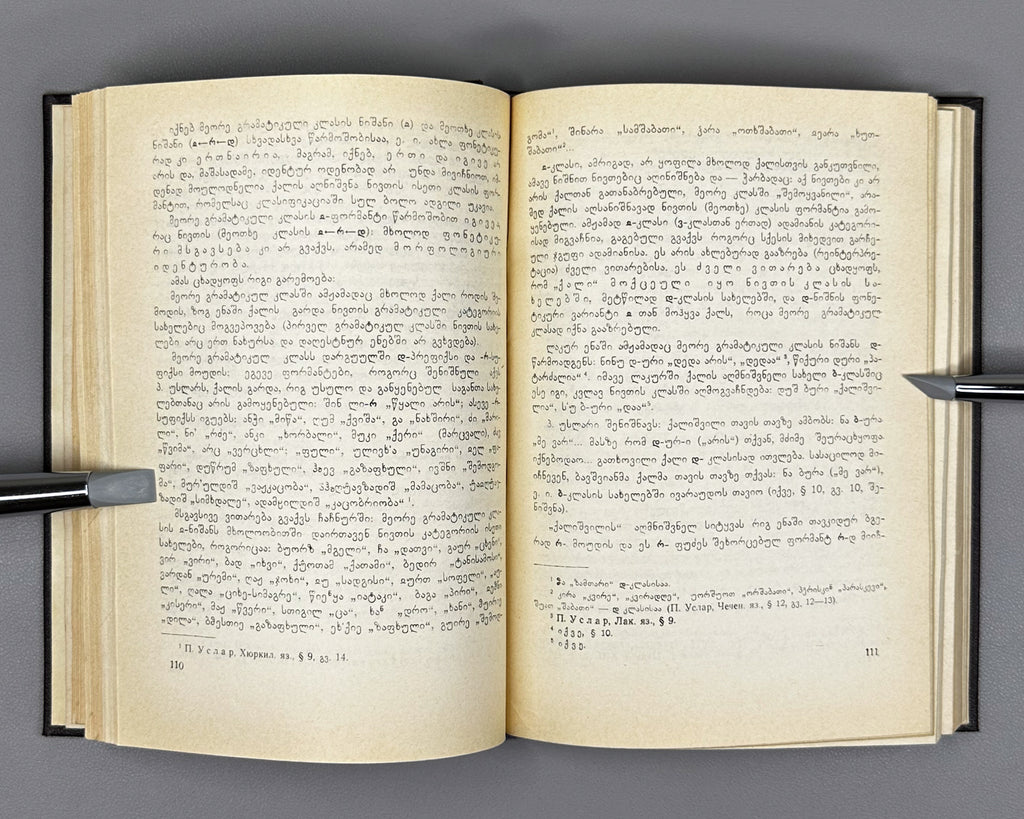 იქნებ მეორე გრამატიკული კლასის ნიშანი (ჲ) და მეოთხე კლასის
ნიშანი (ჲ←რ←დ) სხვადასხვა წარმოშობისაა, ე. ი. ახლა ფონეტიკუ-
რად კი ერთნაირია, მაგრამ, იქნებ, ერთი და იგივე არ
არის და, მაშასადამე, იდენტურ ოდენობად არ უნდა მივიჩნიოთ, იმ-
დენად მოულოდნელია ქალის აღნიშვნა ნივთის ისეთი კლასის ფორ-
მანტით, რომელსაც კლასიფიკაციაში სულ ბოლო ადგილი უკავია.
მეორე გრამატიკული კლასის ჲ-ფორმანტი წარმოშობით იგივეა,
რაც ნივთის (მეოთხე კლასის ჲ←რ←დ): მხოლოდ ფონეტიკუ-
რი მსგავსება კი არ გვაქვს, არამედ მორფოლოგიური
იდენტურობა.
ამას ცხადყოფს რიგი გარემოება:
მეორე გრამატიკულ კლასში ამჟამადაც მხოლოდ ქალი როდის შე-
მოდის, ზოგ ენაში ქალის გარდა ნივთის გრამატიკული კატეგორიის
სახელებიც მოგვეპოვება (პირველ გრამატიკულ კლასში ნივთის სახე-
ლები არც ერთ ნახურსა და დაღესტნურ ენებში არ გვხვდება).
მეორე გრამატიკულ კლასს დარგუულში დ-პრეფიქსი და -რ-სუ-
ფიქსი მოუდის: ეგევე ფორმანტები, როგორც შენიშნული აქვს
პ. უსლარს, ქალის გარდა, რიგ უსულო და განყენებულ საგანთა სახე-
ლებთანაც არის გამოყენებული: შინ ლი-რ „წყალი არის“; ასევე -რ-
სუფიქსს იგუებს: ანჰი „მიწა“, ღუმ „ქვიშა“, გა „ნახშირი“, ძი „მარი-
ლი“, ნიʼ „რძე“, ანკი „ხორბალი“, მუკი „ქერი“ (მარცვალი),
„წვიმა“, არც „ვერცხლი“;
„გაზაფხული“, იეშნი „შემოდგო-
მა“, მურʼულდიშ „ვაჟკაცობა“, „მამაცობა“,
„სიმხდალე“, ადამჲილდიშ „კაცობრიობა“ ¹.
მსგავსივე ვითარება გვაქვს ჩაჩნურში: მეორე გრამატიკული კლა-
სის ჲ-ნიშანს მხოლობითში დაირთავენ ნივთის კატეგორიის ისეთი
სახელები, როგორიცაა: ბუორზ „მგელი“, ჩა „დათვი“, გაურ „ცხენი“,
ვირ „ვირი“, ბად „იხვი“, ქუოთამ „ქათამი“, ბედირ „ტანისამოსი“,
ვარდან „ურემი“, ღაჟ „ჯოხი“, ჲუ „სადგისი“, ჲურთ „სოფელი“,
ლი“, ღალა „ციხე-სიმაგრე“, „იატაკი“, ბაგა „პირი“,
„კისერი“, მაჟ „წვერი“, სთიგილ „ცა“, ხან „დრო“, „ხანი“,
„დილა“, ბჰესთიე „გაზაფხული“, ეხʼქიე „ზაფხული“, გუირე „შემოდ-
¹ П. Услар, Хюркил. яз., § 9, გვ. 14.
110
გომა“¹, შინარა „სამშაბათი“, ჴარა „ოთხშაბათი“, ჲეარა „ხუთ-
შაბათი“²...
ჲ-კლასი, ამრიგად, არ ყოფილა მხოლოდ ქალისთვის განკუთვნილი,
ამავე ნიშნით ნივთებიც აღინიშნება და — ჰარბადაც: აქ ნივთები კი არ
არის ქალთან გათანაბრებული, მეორე კლასში „შემოყვანილი“, არა-
მედ ქალის აღსანიშნავად ნივთის (მეოთხე) კლასის ფორმანტია გამო-
ყენებული. ამჟამად ჲ-კლასი (ვ-კლასთან ერთად) ადამიანის კატეგორი-
ისად მიგვაჩნია, გაგებული გვაქვს როგორც სქესის მიხედვით გარჩე-
ული ჯგუფი ადამიანისა. ეს არის ახლებურად გააზრება (რეინტერპრე-
ტაცია) ძველი ვითარებისა. ეს ძველი ვითარება ცხადყოფს,
რომ „ქალი“ მოქცეული იყო ნივთის კლასის სა-
ხელებში, მეტწილად დ-კლასის სახელებში, და დ-ნიშნის ფონე-
ტიკური ვარიანტი ჲ თან მოჰყვა ქალს, როცა მეორე გრამატიკულ
კლასად იქნა გააზრებული.
ლაკურ ენაში ამჟამადაც მეორე გრამატიკული კლასის ნიშანს დ-
წარმოადგენს: ნინუ დ-ური „დედა არის“, „დედაა“ ³, წიქური დური „პა-
ტარძალია“⁴. იმავე ლაკურში ქალის აღმნიშვნელი სახელი ბ-კლასშიც
ესე იგი, კვლავ ნივთის კლასში აღმოგვაჩნდება: დუშ ბური „ქალიშვი-
ლია“, სʼუ ბ-ური „დაა“⁵.
პ. უსლარი შენიშნავს: ქალიშვილი თავის თავზე ამბობს: ნა ბ-ურა
„მე ვარ“... მასზე რომ დ-ურ-ი („არის“) თქვან, მძიმე შეურაცხყოფა
იქნებოდაო... გათხოვილი ქალი დ- კლასისად ითვლება. სასაცილოდ მი-
იჩნევენ, ბავშვიანმა ქალმა თავის თავზე თქვას: ნა ბურა („მე ვარ“),
ე. ი. ბ-კლასის სახელებში ივარაუდოს თავიო (იქვე, § 10, გვ. 10, შე-
ნიშვნა).
„ქალიშვილის“ აღმნიშვნელ სიტყვას რიგ ენაში თავკიდურ ბგე-
რად რ- მოუდის და ეს რ- ფუძეს შეხორცებულ ფორმანტ რ-დ მიიჩ-
¹ მა „ზამთარი“ დ-კლასისაა.
² კირა „კვირე“, „კვირადღე“, უორშუოთ „ორშაბათი“, „პარასკევი“,
შუოთ „შაბათი“ — დ კლასისაა (П. Услар, Чечен. яз., § 12, გვ. 12—13).
³ П. Услар, Лак. яз., § 9.
⁴ იქვე, § 10.
⁵ იქვე.
111